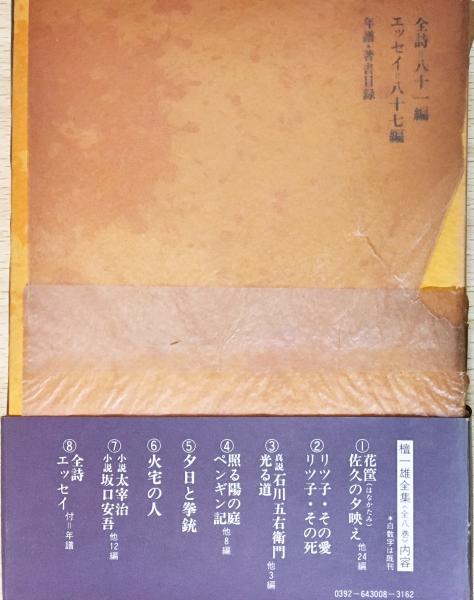 全詩 八十一編
エッセイ=八十七編
年譜・著書目録
檀一雄全集〈全八巻〉内容
*白数字は既刊
①花筐(はなかたみ)
佐久の夕映え 他24編
②リツ子・その愛
リツ子・その死
③真説 石川五右衛門
光る道 他3編
④照る陽の庭
ペンギン記 他8編
⑤夕日と拳銃
⑥火宅の人
⑦小説 太宰治
小説 坂口安吾 他12編
⑧全詩
エッセイ 付=年譜
0392-643008-3162